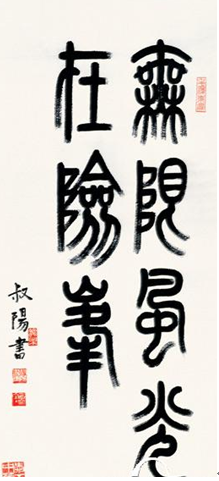 無限風光
在險峯
叔陽書